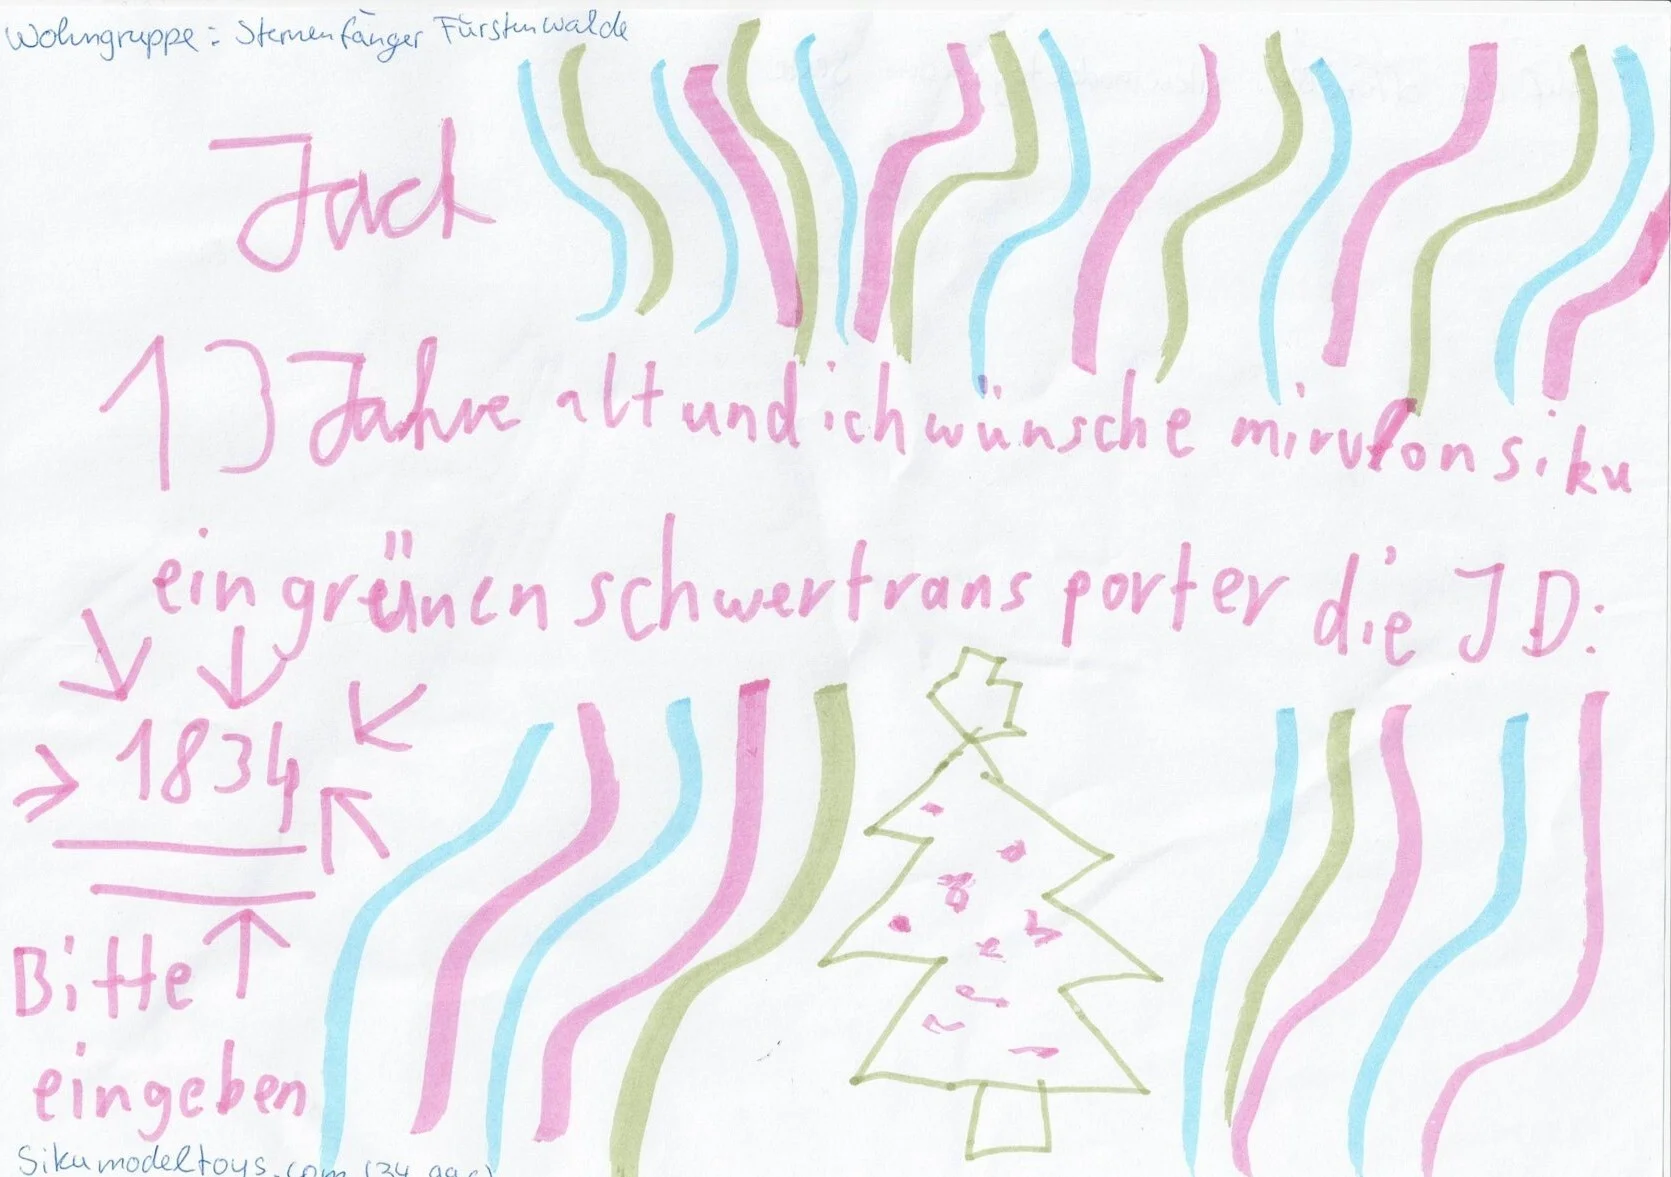 Wohngruppe: Sternenfänger Fürstenwalde
Jack
13 Jahre alt und ich wünsche mir von siku
ein grünen schwertransporter die ID:
1834
Bitte
eingeben
Sikumodeltoys.com (34,99€)